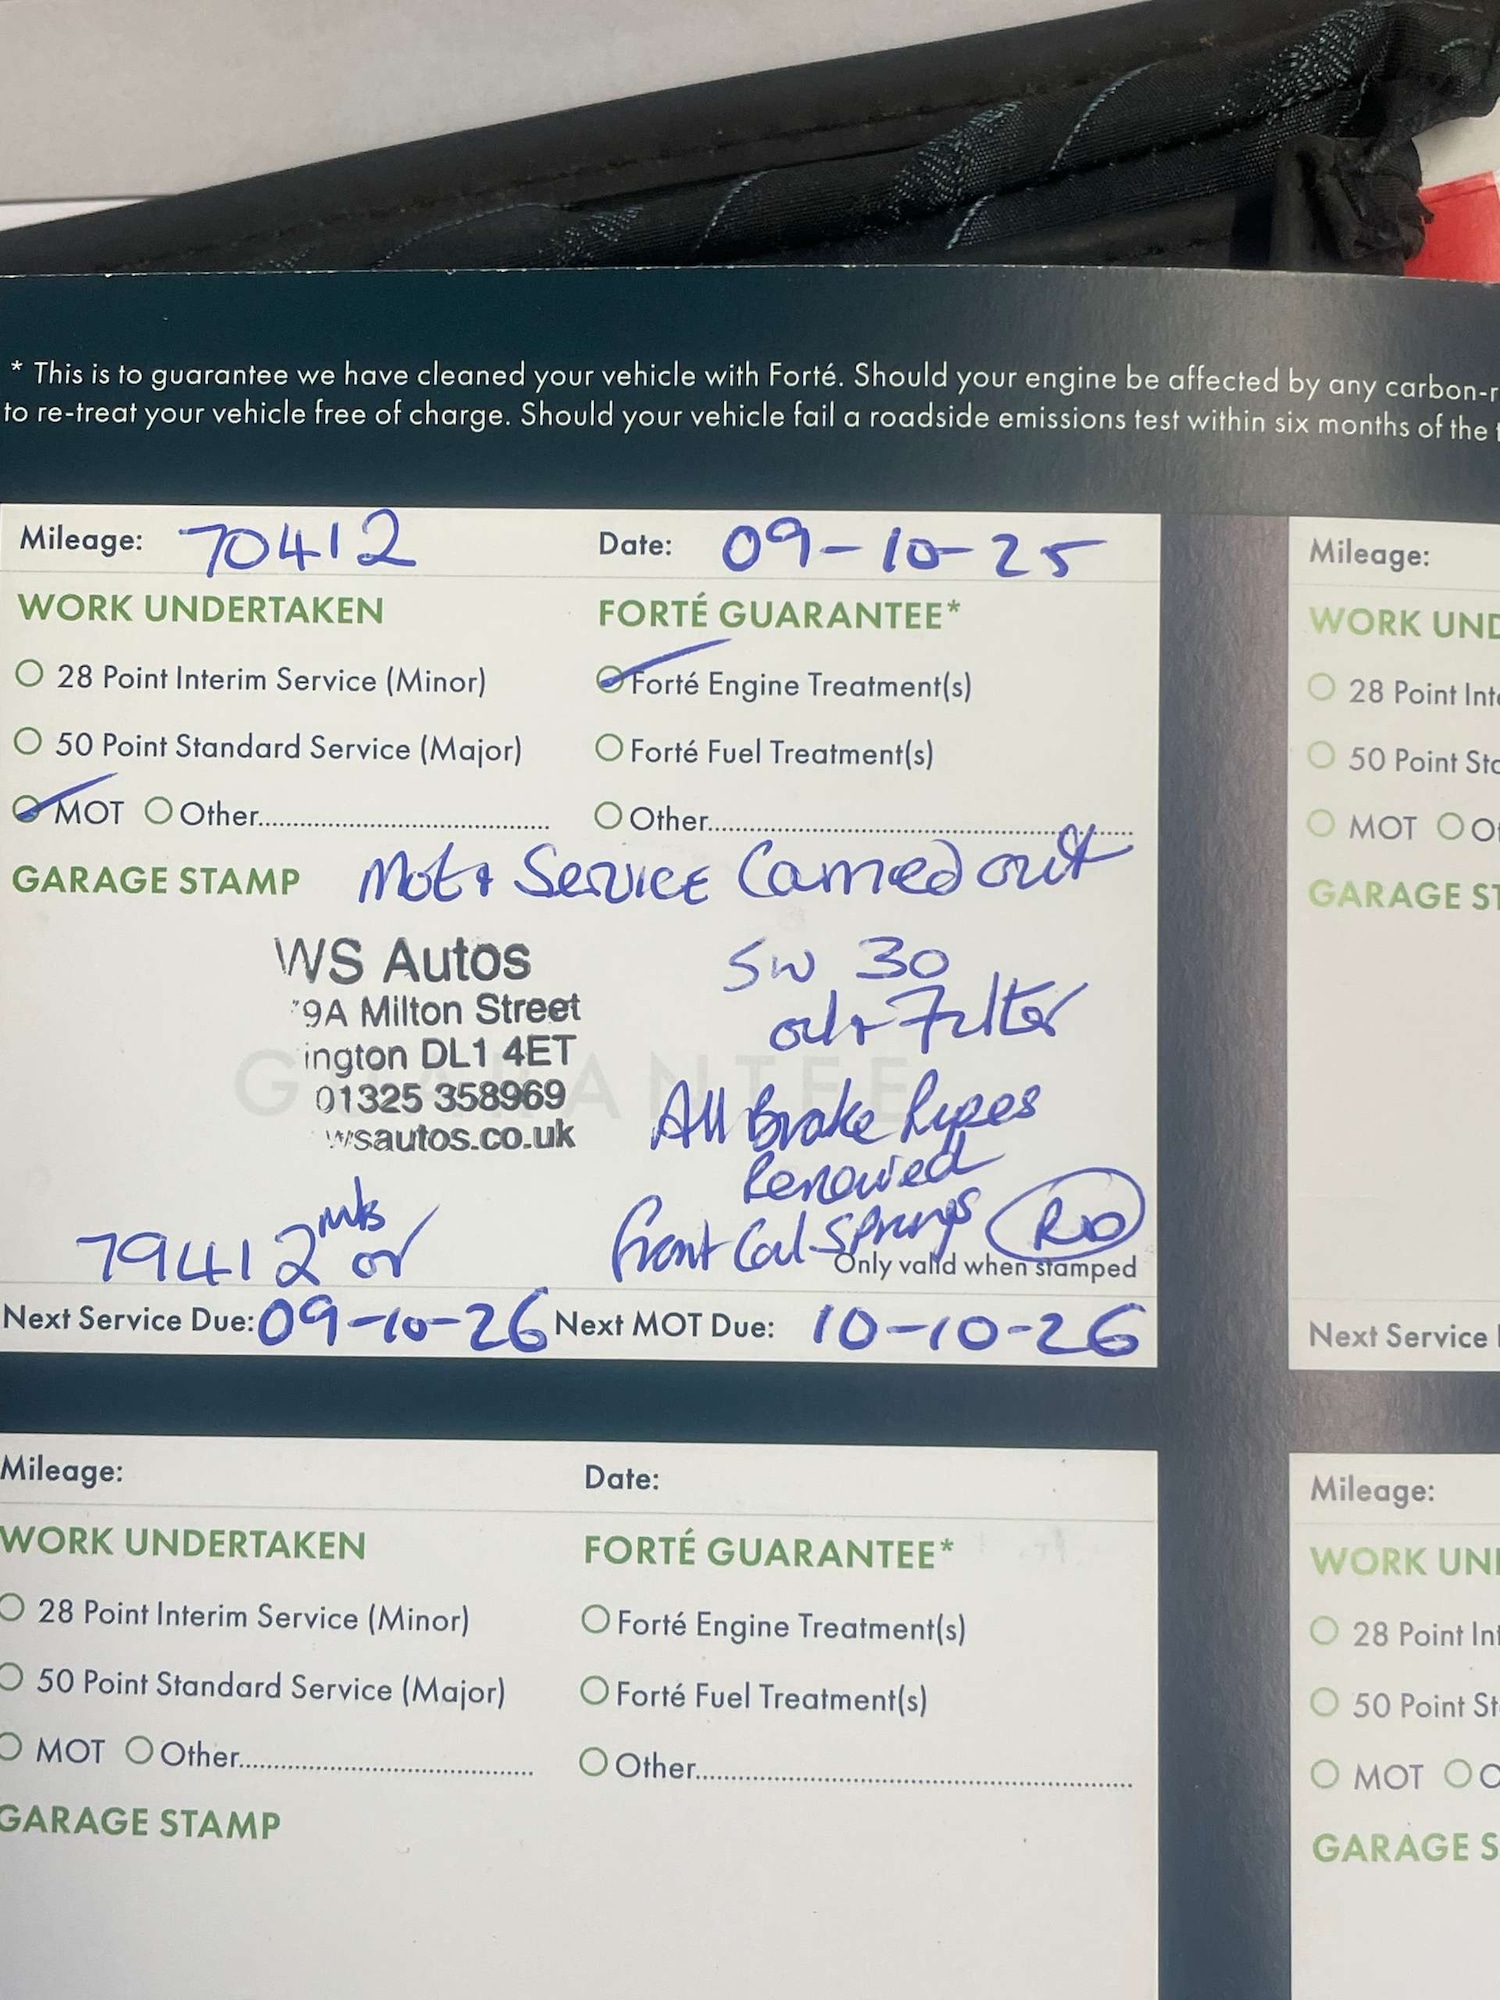 * This is to guarantee we have cleaned your vehicle with Forté. Should your engine be affected by any carbon-r
to re-treat your vehicle free of charge. Should your vehicle fail a roadside emissions test within six months of the t
Mileage: 70412 Date: 09-10-25
WORK UNDERTAKEN FORTÉ GUARANTEE*
28 Point Interim Service (Minor) Forté Engine Treatment(s)
50 Point Standard Service (Major) Forté Fuel Treatment(s)
MOT Other.......... Other..........
GARAGE STAMP Mot + Service Carried out
WS Autos
9A Milton Street
ington DL1 4ET
01325 358969
wsautos.co.uk
GUARANTEE
5w 30
oil + Filter
All Brake Pipes
Renewed
front Coil Springs
Only valid when stamped
79412 mls or
Next Service Due: 09-10-26 Next MOT Due: 10-10-26
Mileage:
WORK UND
28 Point Inte
50 Point Sta
MOT Ot
GARAGE ST
Next Service
Mileage: Date:
WORK UNDERTAKEN FORTÉ GUARANTEE*
28 Point Interim Service (Minor) Forté Engine Treatment(s)
50 Point Standard Service (Major) Forté Fuel Treatment(s)
MOT Other.......... Other..........
GARAGE STAMP
Mileage:
WORK UN
28 Point Int
50 Point St
MOT O
GARAGE S